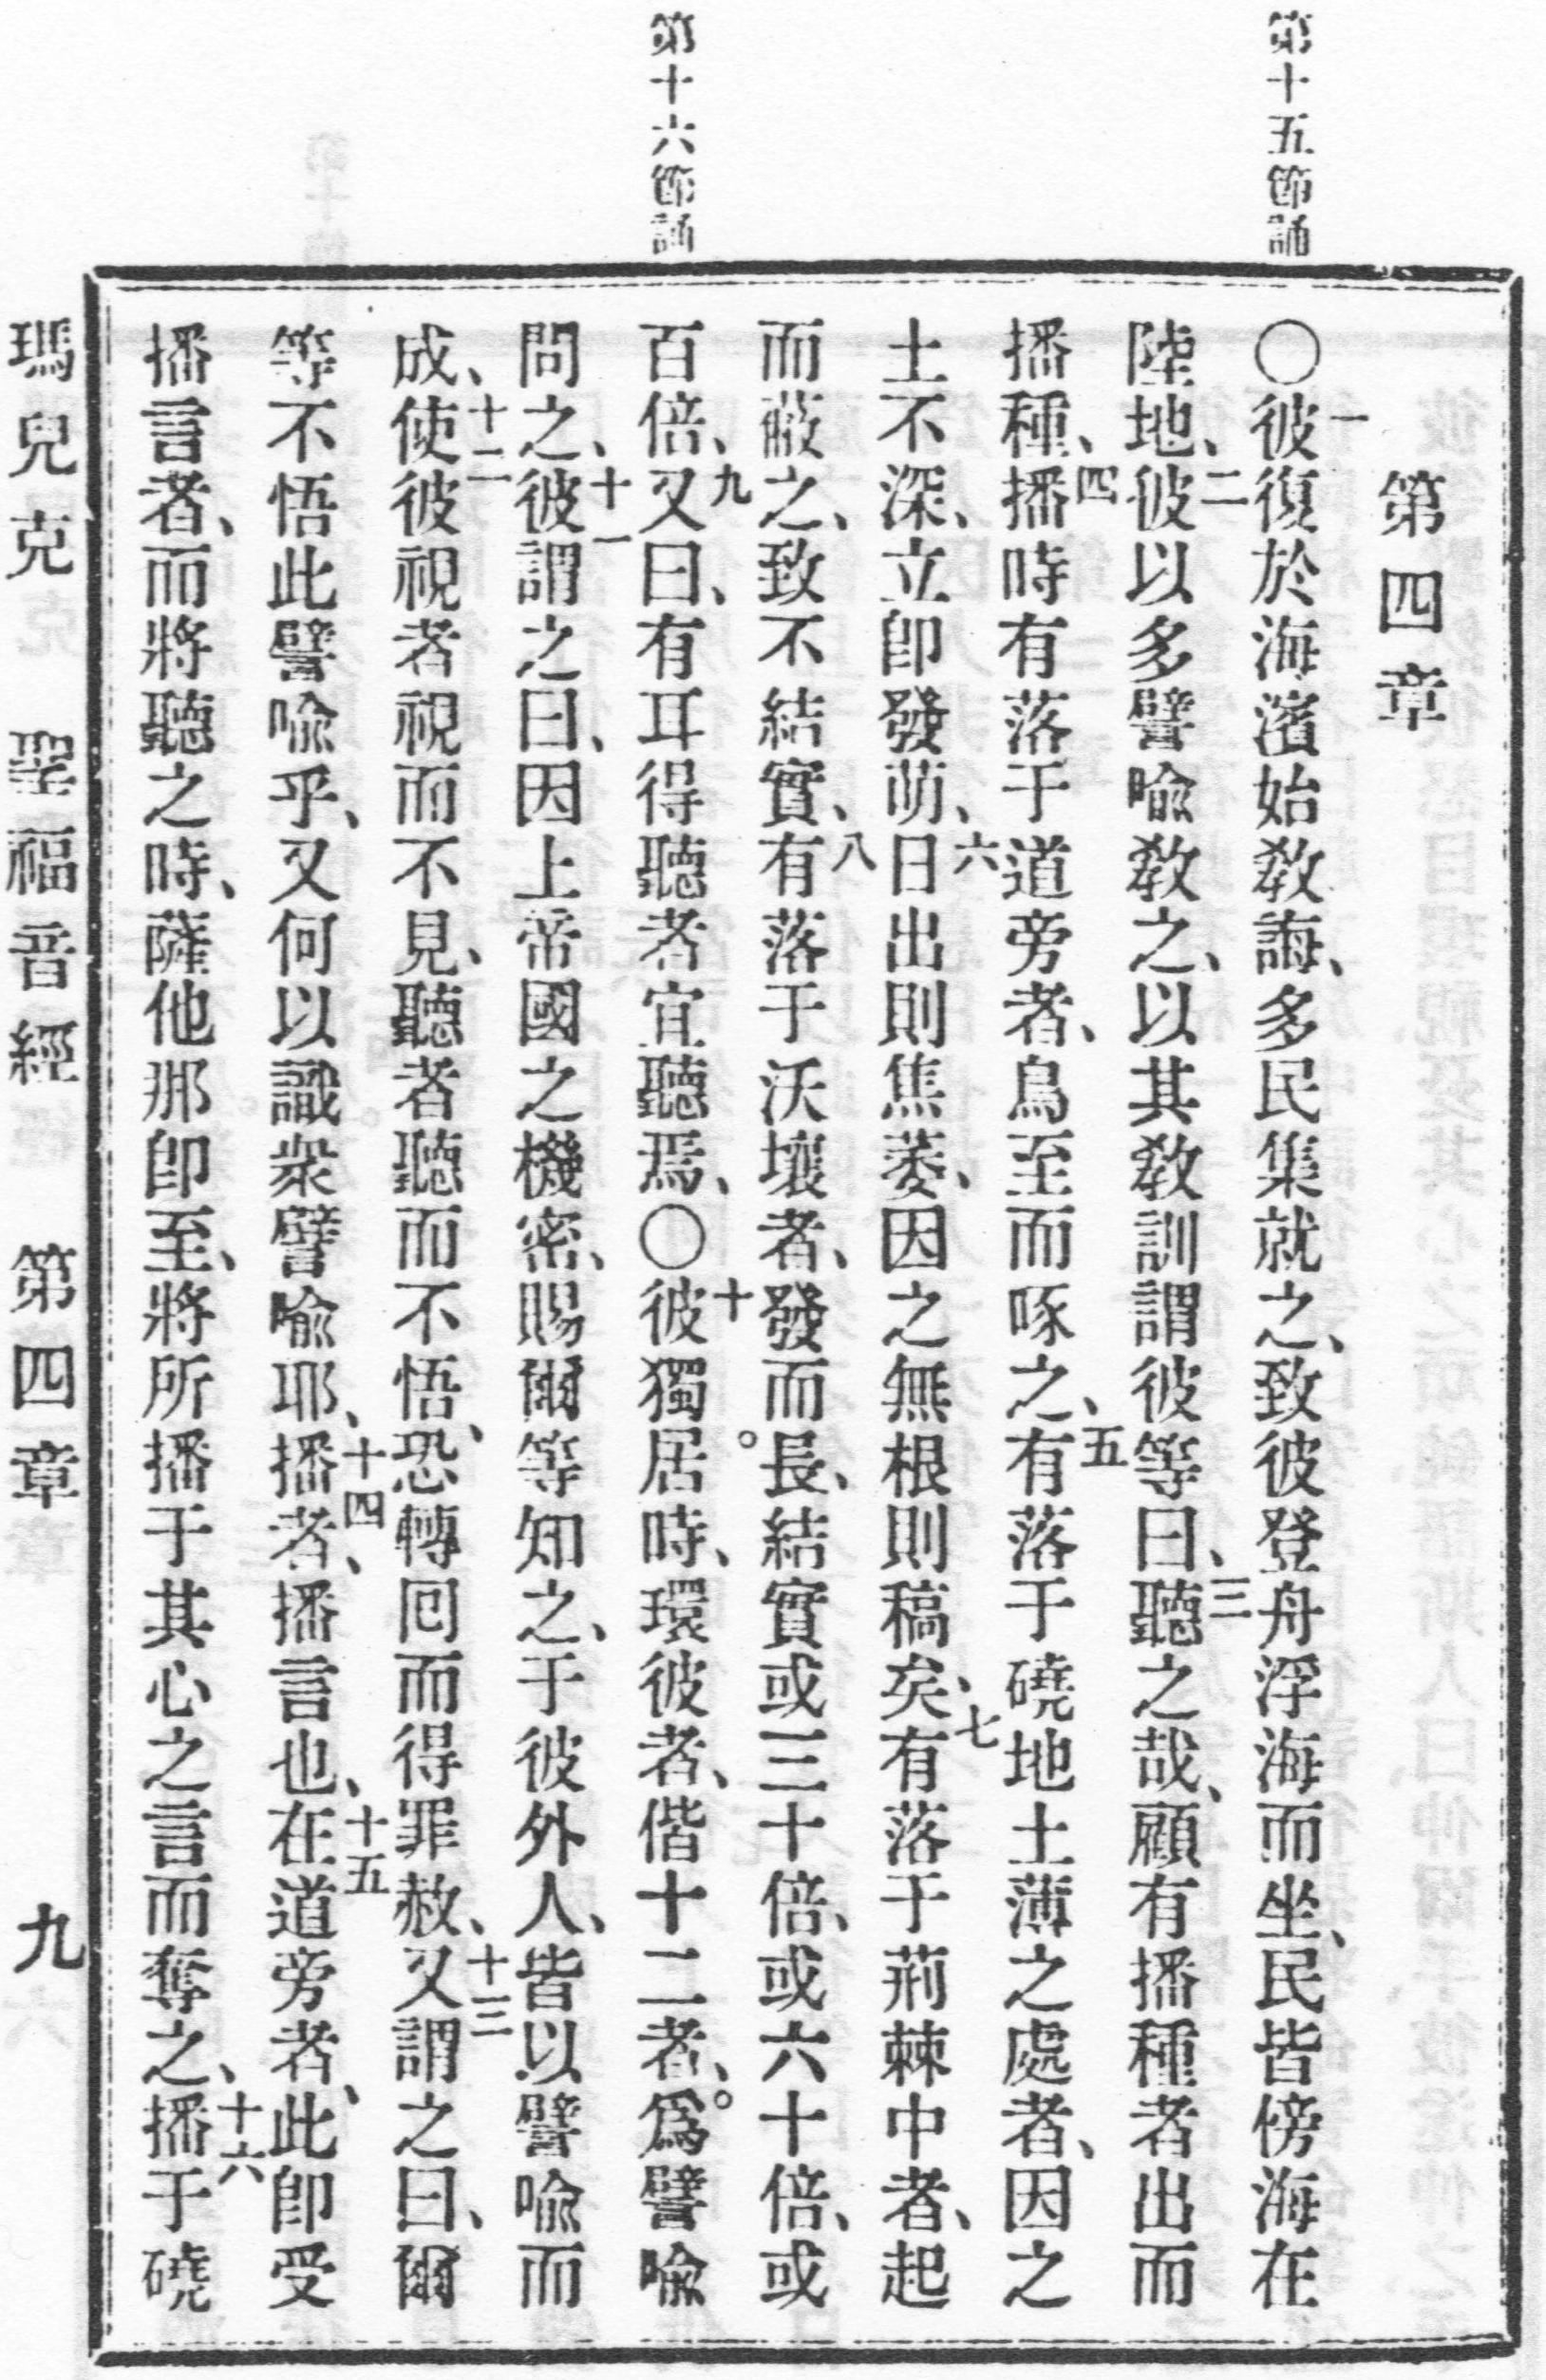 第十五節誦
第十六節誦
第四章
〇一彼復於海濱始敎誨、多民集就之、致彼登舟浮海而坐、民皆傍海在
陸地、二彼以多譬喩敎之、以其敎訓謂彼等曰、三聽之哉、顧有播種者出而
播種、四播時有落于道旁者、鳥至而啄之、五有落于磽地土薄之處者、因之
土不深、立卽發萌、六日出則焦萎、因之無根則稿矣、七有落于荊棘中者、起
而蔽之、致不結實、八有落于沃壤者、發而長、結實或三十倍、或六十倍、或
百倍、九又曰、有耳得聽者宜聽焉、〇十彼獨居時、環彼者、偕十二者、爲譬喩
問之、十一彼謂之曰、因上帝國之機密、賜爾等知之、于彼外人、皆以譬喩而
成、十二使彼視者視而不見、聽者聽而不悟、恐轉回而得罪赦、十三又謂之曰、爾
等不悟此譬喩乎、又何以識衆譬喩耶、十四播者、播言也、十五在道旁者、此卽受
播言者、而將聽之時、薩他那卽至、將所播于其心之言而奪之、十六播于磽
瑪兒克 聖福音經 第四章 九